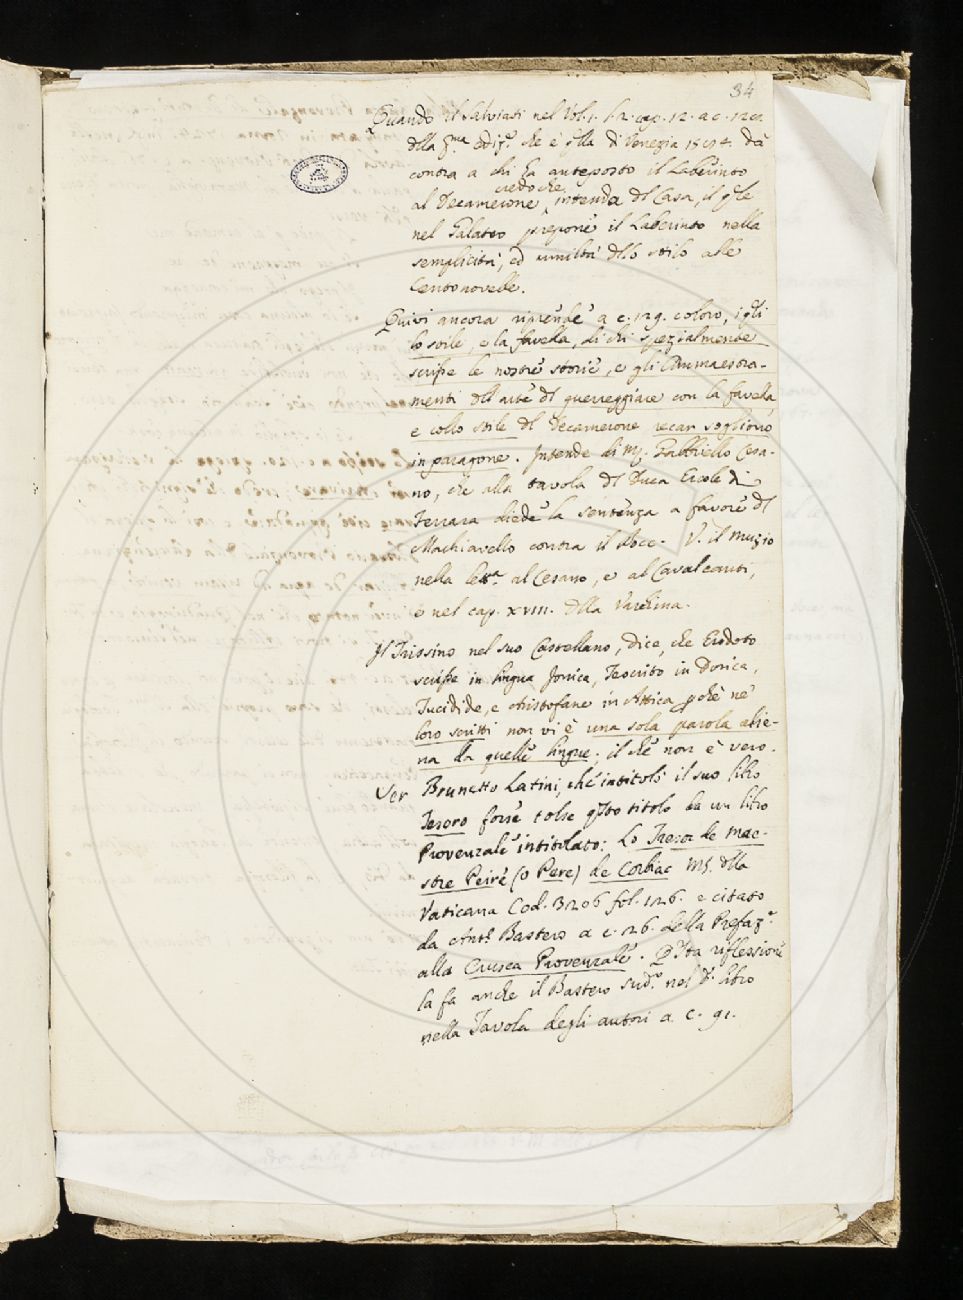 34
Quando il Salviati nel Vol. 1. l. 2. cap. 12. a c. 129
dlla pma. ediz.e che è qlla di Venezia 1584. dà
contra a chi ha anteposto il Laberinto
credo che
al Decamerone, intenda dl Casa, il qle
nel Galateo prepone il Laberinto nella
semplicità, ed umiltà dllo stilo alle
Centonovelle.
Quivi ancora riprende a c. 129. coloro, i qli
lo stile, e la favella, di chi spezialmente
scrisse le nostre storie, e gli Ammaestra-
menti dll'arte dl guerreggiare con la favella,
e collo stile dl Decamerone recar sogliono
in paragone. Intende di Mr. Gabbriello Cesa-
no, che alla tavola dl Duca Ercole di
Ferrara diede la sentenza a favore dl
Machiavello contra il Bocc. V. il Muzio
nella letta. al Cesano, e al Cavalcanti,
e nel cap. XVIII. dlla Varchina.
Il Trissino nel suo Castellano, dice, che Erodoto
scrisse in lingua Jonica, Teocrito in Dorica,
Tucidide, e Aristofane in Attica pchè ne'
loro scritti non vi è una sola parola alie-
na da quelle lingue; il che non è vero.
Ser Brunetto Latini, che intitolò il suo libro
Tesoro forse tolse qsto titolo da un libro
Provenzale intitolato: Lo Tresor de Mae-
stre Peire (o Pere) de Corbiac MS. dlla
Vaticana Cod. 3206 fol. 126. e citato
da Antº. Bastero a c. 126. della Prefaze.
alla Crusca Provenzale. Qsta riflessione
la fa anche il Bastero sudº. nel dº. libro
nella Tavola degli autori a c. 91.